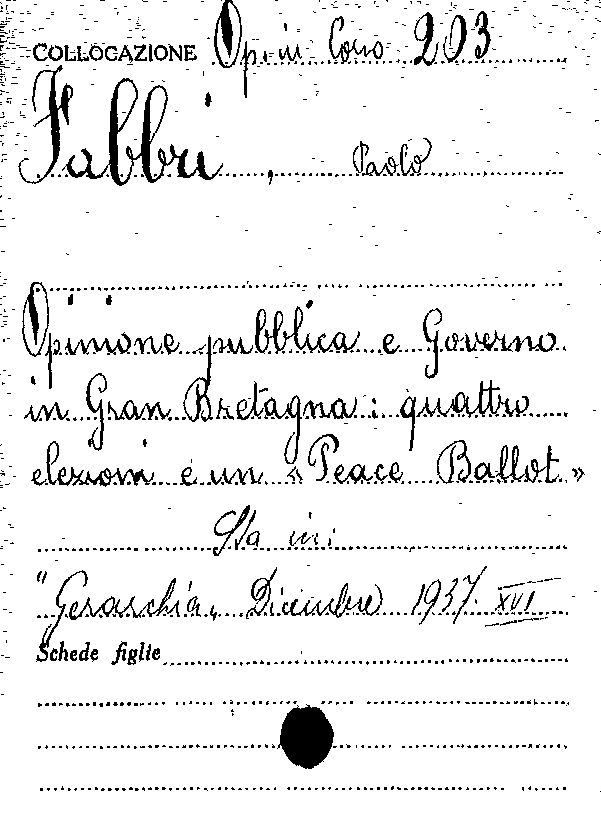 COLLOCAZIONE Op. in Corso 203
Fabbri, Paolo
Opinione pubblica e Governo
in Gran Bretagna: quattro
elezioni e un «Peace Ballot»
Sta in:
"Gerarchia" Dicembre 1937. XVI
Schede figlie